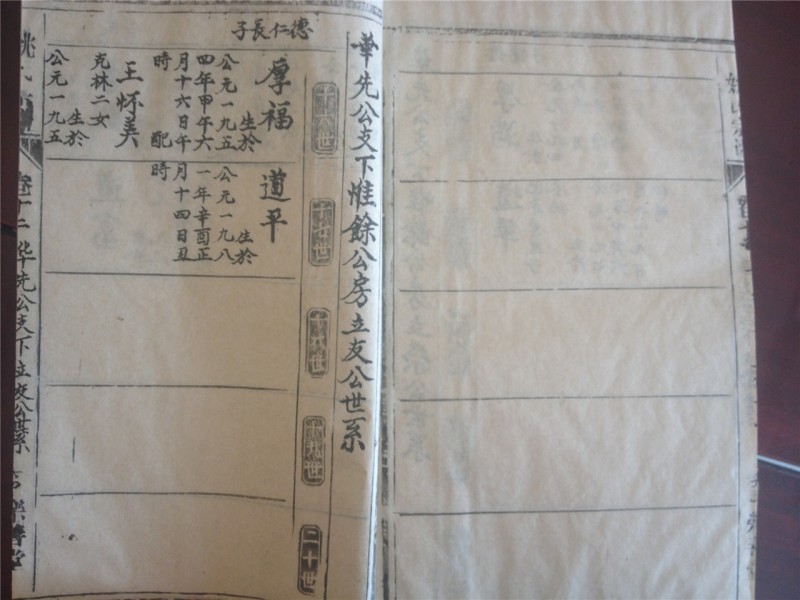 華先公支下惟餘公房立友公世系
十六世
十七世
十八世
十九世
二十世
德仁長子
厚福
生於
公元一九五
四年甲午六
月十六日午
時 配
王怀美
克林二女
生於
公元一九五
道平
生於
公元一九八
一年辛酉正
月十四日丑
時
卷十二 华先公支下立友公世系
樂善堂